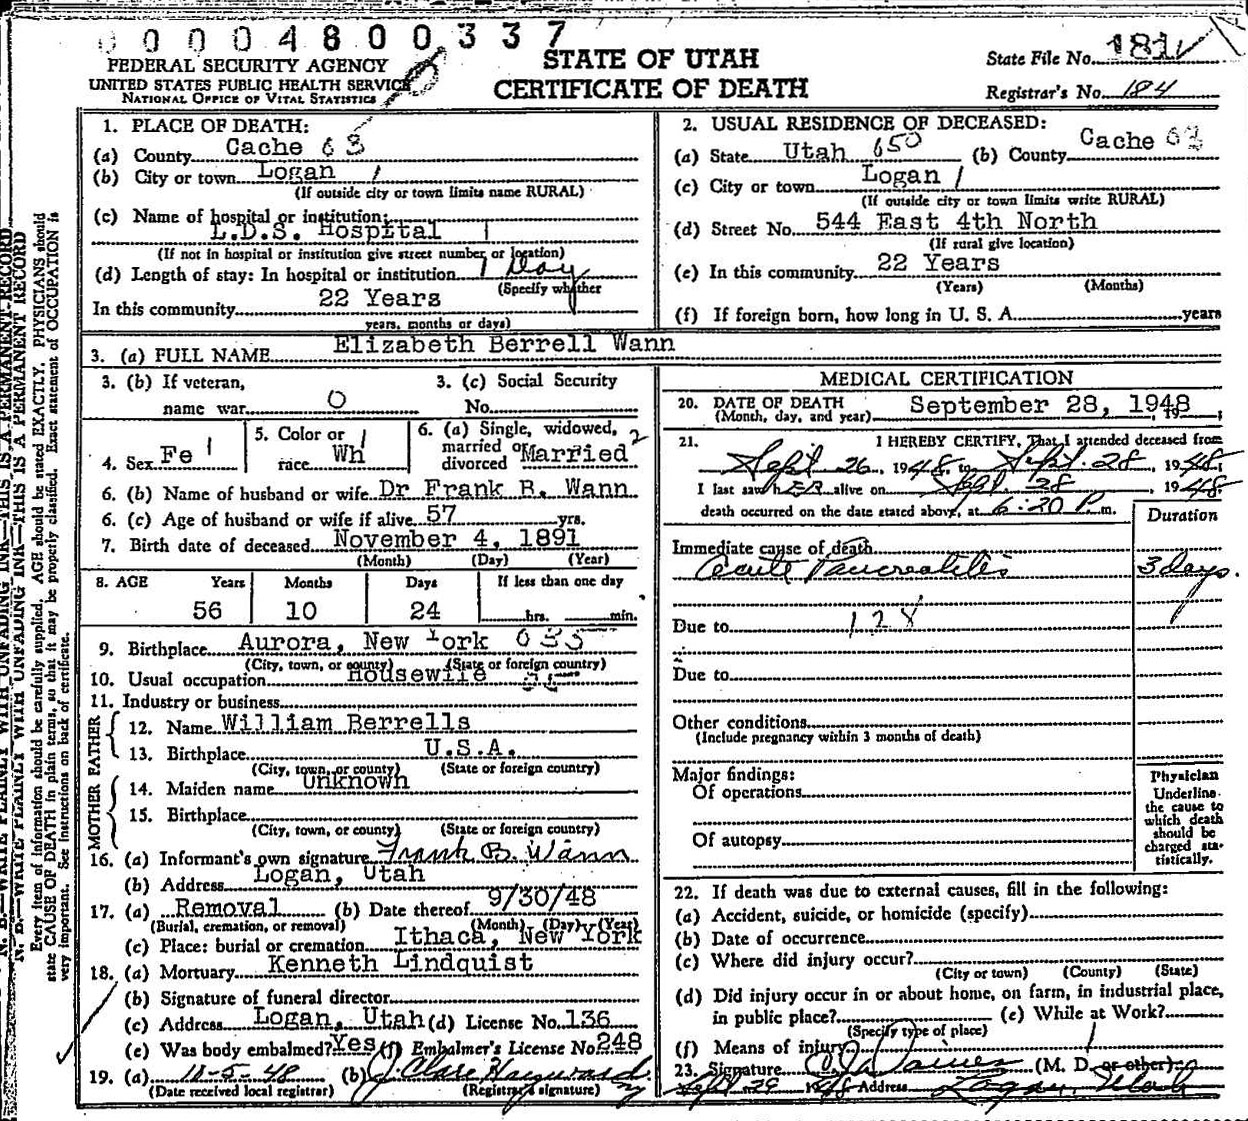 0 0 0 0 4 8 0 0 3 3 7
FEDERAL SECURITY AGENCY
UNITED STATES PUBLIC HEALTH SERVICE
NATIONAL OFFICE OF VITAL STATISTICS
STATE OF UTAH
CERTIFICATE OF DEATH
State File No. 181
Registrar's No. 184
N. B.—WRITE PLAINLY WITH UNFADING INK—THIS IS A PERMANENT RECORD
Every item of information should be carefully supplied. AGE should be stated EXACTLY. PHYSICIANS should
state CAUSE OF DEATH in plain terms, so that it may be properly classified. Exact statement of OCCUPATION is
very important. See instructions on back of certificate.
1. PLACE OF DEATH:
(a) County Cache 63
(b) City or town Logan 1
(If outside city or town limits name RURAL)
(c) Name of hospital or institution:
L.D.S. Hospital 1
(If not in hospital or institution give street number or location)
(d) Length of stay: In hospital or institution 1 Day
(Specify whether
In this community 22 Years
years, months or days)
2. USUAL RESIDENCE OF DECEASED:
(a) State Utah 650 (b) County Cache 63
(c) City or town Logan 1
(If outside city or town limits write RURAL)
(d) Street No. 544 East 4th North
(If rural give location)
(e) In this community 22 Years
(Years) (Months)
(f) If foreign born, how long in U. S. A. years
3. (a) FULL NAME Elizabeth Berrell Wann
3. (b) If veteran,
name war O
3. (c) Social Security
No.
4. Sex Fe 1
5. Color or
race Wh 1
6. (a) Single, widowed, 2
married or
divorced Married
6. (b) Name of husband or wife Dr Frank B. Wann
6. (c) Age of husband or wife if alive 57 yrs.
7. Birth date of deceased November 4, 1891
(Month) (Day) (Year)
8. AGE Years Months Days If less than one day
56 10 24 hrs. min.
9. Birthplace Aurora, New York 035
(City, town, or county) (State or foreign country)
10. Usual occupation Housewife
11. Industry or business
FATHER
12. Name William Berrells
13. Birthplace U.S.A.
(City, town, or county) (State or foreign country)
MOTHER
14. Maiden name Unknown
15. Birthplace
(City, town, or county) (State or foreign country)
16. (a) Informant's own signature Frank B. Wann
(b) Address Logan, Utah
17. (a) Removal (b) Date thereof 9/30/48
(Burial, cremation, or removal) (Month) (Day) (Year)
(c) Place: burial or cremation Ithaca, New York
18. (a) Mortuary Kenneth Lindquist
(b) Signature of funeral director
(c) Address Logan, Utah (d) License No. 136
(e) Was body embalmed? Yes (f) Embalmer's License No. 248
19. (a) 10-5-48 (b) J. Clare Hayward
(Date received local registrar) (Registrar's signature)
MEDICAL CERTIFICATION
20. DATE OF DEATH
(Month, day, and year) September 28, 1948, 19
21. I HEREBY CERTIFY, That I attended deceased from
Sept 26, 1948, to Sept. 28, 1948,
I last saw hER alive on Sept. 28, 1948.
death occurred on the date stated above, at 6:20 P.m.
Duration
Immediate cause of death
Acute Pancreatitis 3 days.
Due to 128
Due to
Other conditions
(Include pregnancy within 3 months of death)
Major findings:
Of operations
Of autopsy
Physician
Underline
the cause to
which death
should be
charged sta-
tistically.
22. If death was due to external causes, fill in the following:
(a) Accident, suicide, or homicide (specify)
(b) Date of occurrence
(c) Where did injury occur?
(City or town) (County) (State)
(d) Did injury occur in or about home, on farm, in industrial place,
in public place? (e) While at Work?
(Specify type of place)
(f) Means of injury
23. Signature Daines (M. D. or other)
Sept 29 1948 Address Logan, Utah